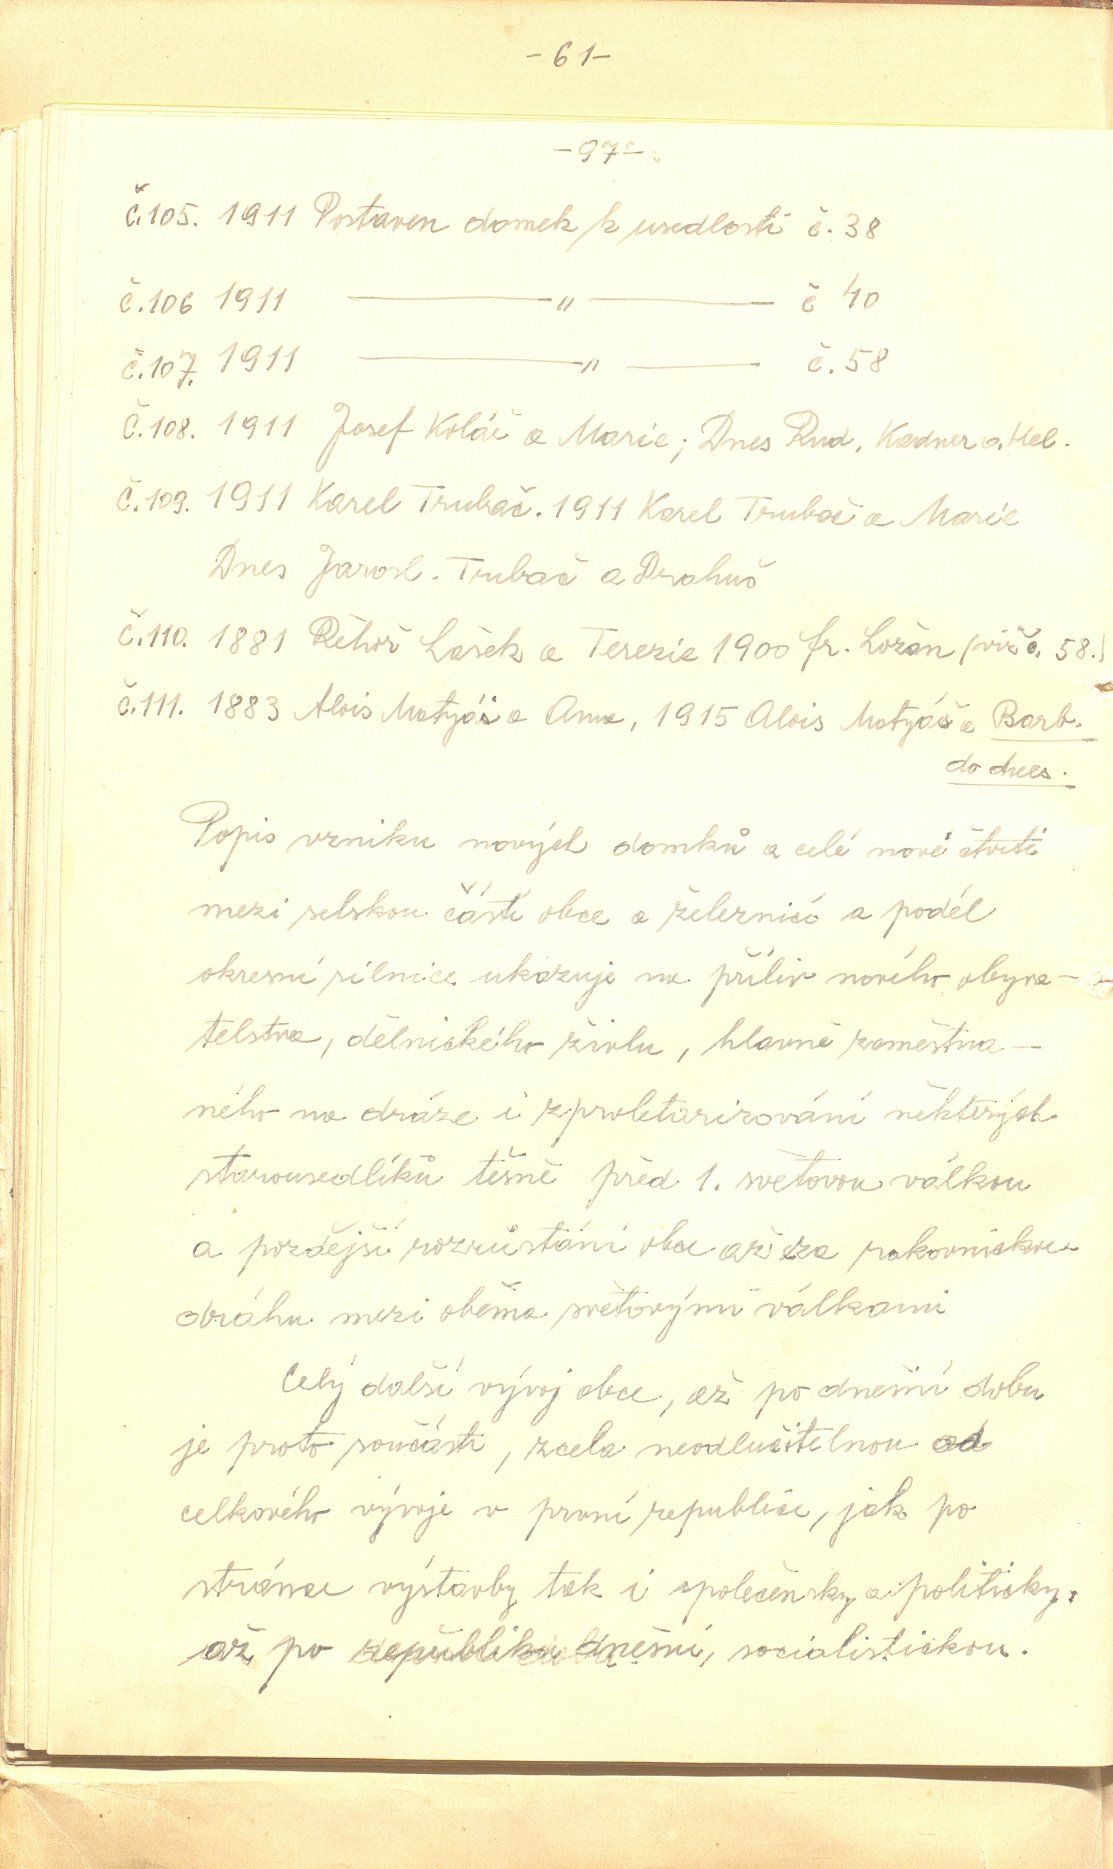 -61-
-97-
č.105. 1911 Postaven domek k usedlosti č. 38
č.106 1911 ——— " ——— č 40
č.107. 1911 ——— " ——— č.58
Č.108. 1911 Josef Kolář a Marie; Dnes Rud. Kadner a Hel.
Č.109. 1911 Karel Trubač. 1911 Karel Trubač a Marie
Dnes Jarosl. Trubač a Drahuš
Č.110. 1881 Řehoř Lašek a Terezie 1900 fr. Ložan (viz č. 58.)
Č.111. 1883 Alois Matyáš a Anna, 1915 Alois Matyáš a Barb.
do dnes.
Popis vzniku nových domků a celé nové čtvrti
mezi selskou částí obce a železnicí a podél
okresní silnice ukazuje na příliv nového obyva-
telstva, dělnického živlu, hlavně zaměstna-
ného na dráze i zproletarizování některých
starousedlíků těsně před 1. světovou válkou
a pozdější rozrůstání obce až za rakovnickou
dráhu mezi oběma světovými válkami
Celý další vývoj obce, až po dnešní dobu
je proto součástí, zcela neodlučitelnou od
celkového vývoje v první republice, jak po
stránce výstavby tak i společensky a politicky.
až po republiku dnešní, socialistickou.